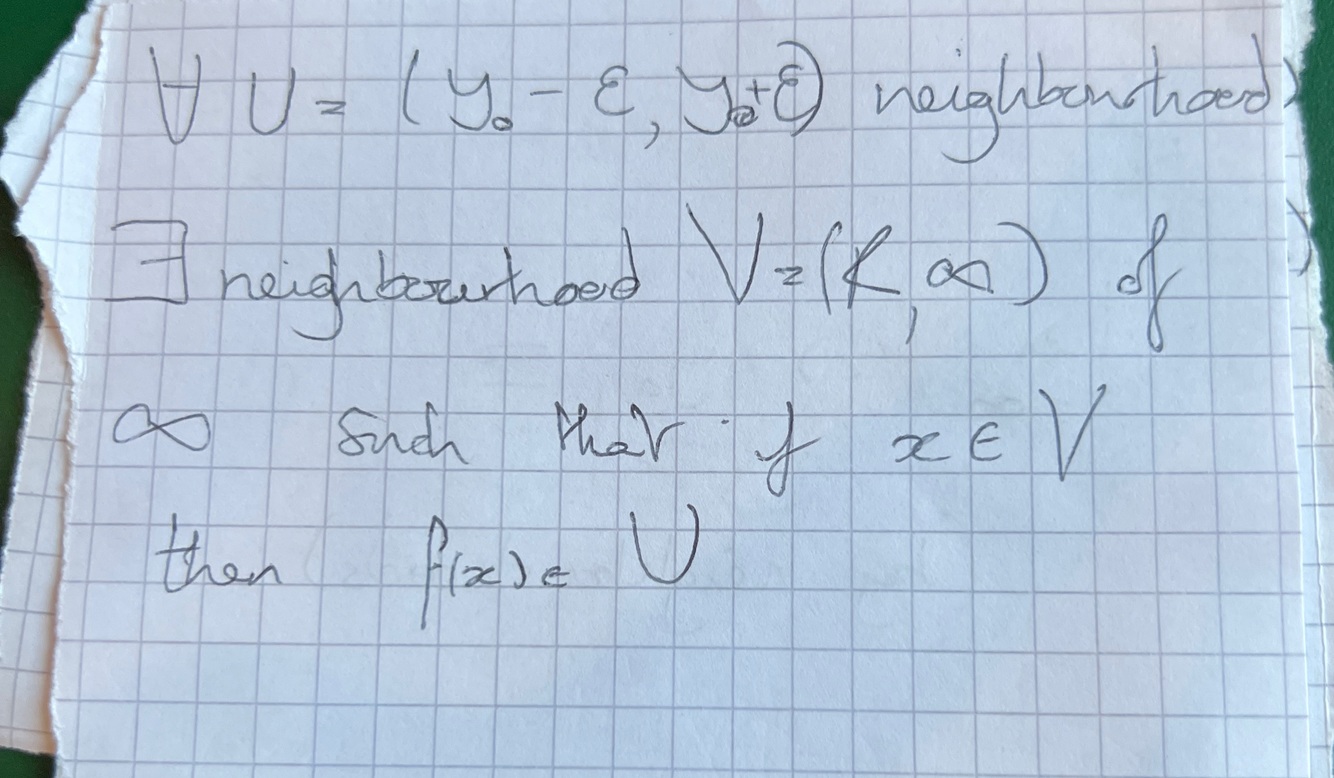 ∀ U = (y₀ - ε, y₀+ε) neighbourhood
∃ neighbourhood V = (K, ∞) of
∞ such that if x ∈ V
then f(x) ∈ U